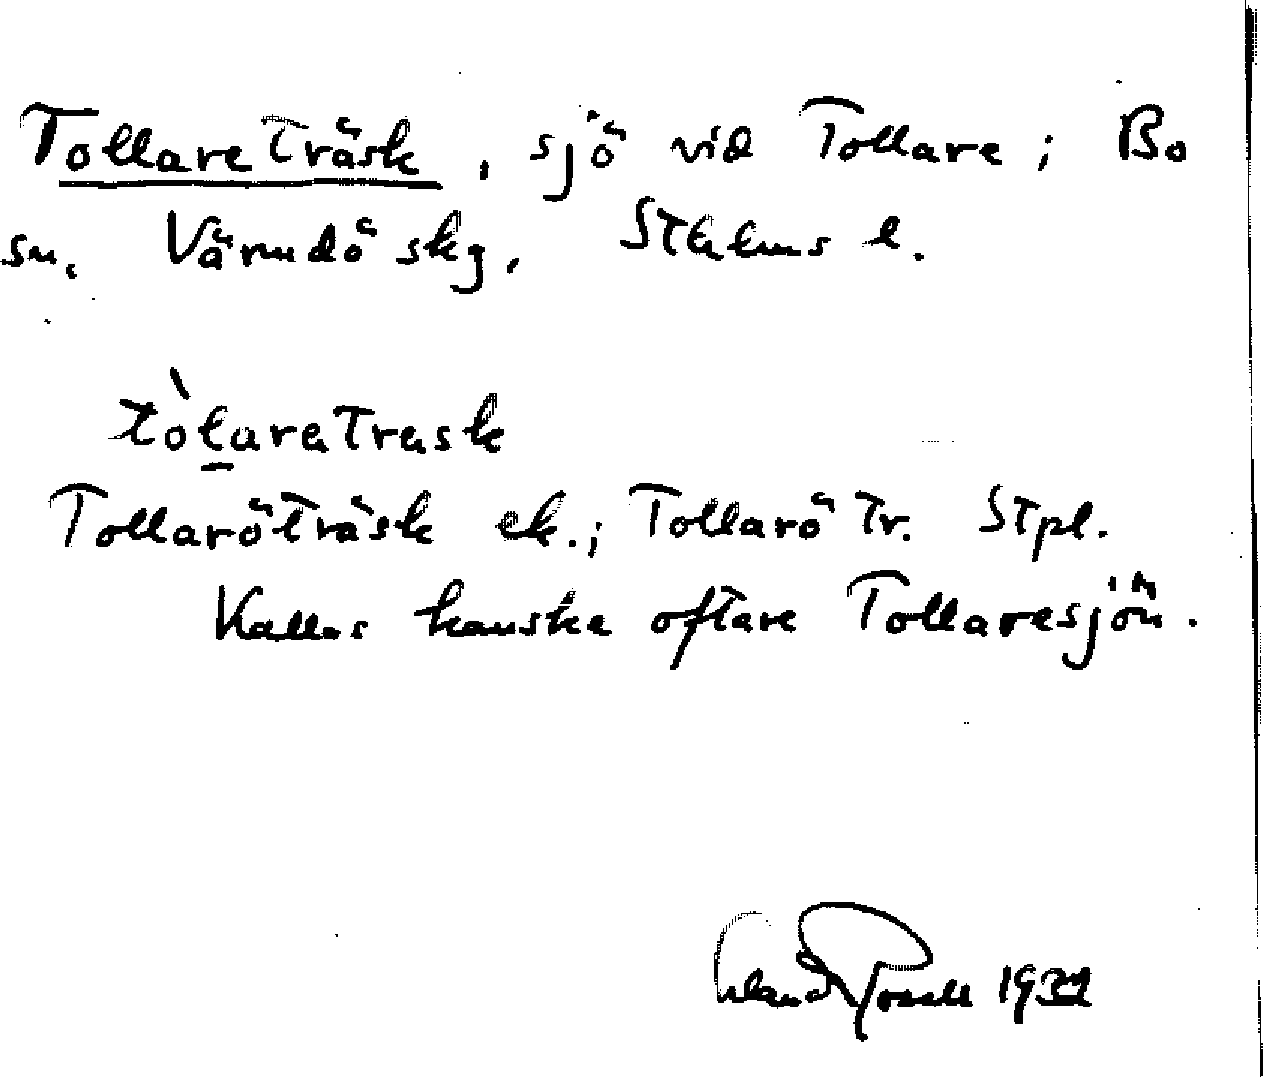 Tollareträsk, sjö vid Tollare; Bo
sn. Värmdö skg, Sthlms l.
tòl̲aretresk
Tolларöträsk ek.; Tollarö Tr. Stpl.
Kallas kanske oftare Tollaresjön.
Erland Rosell 1932